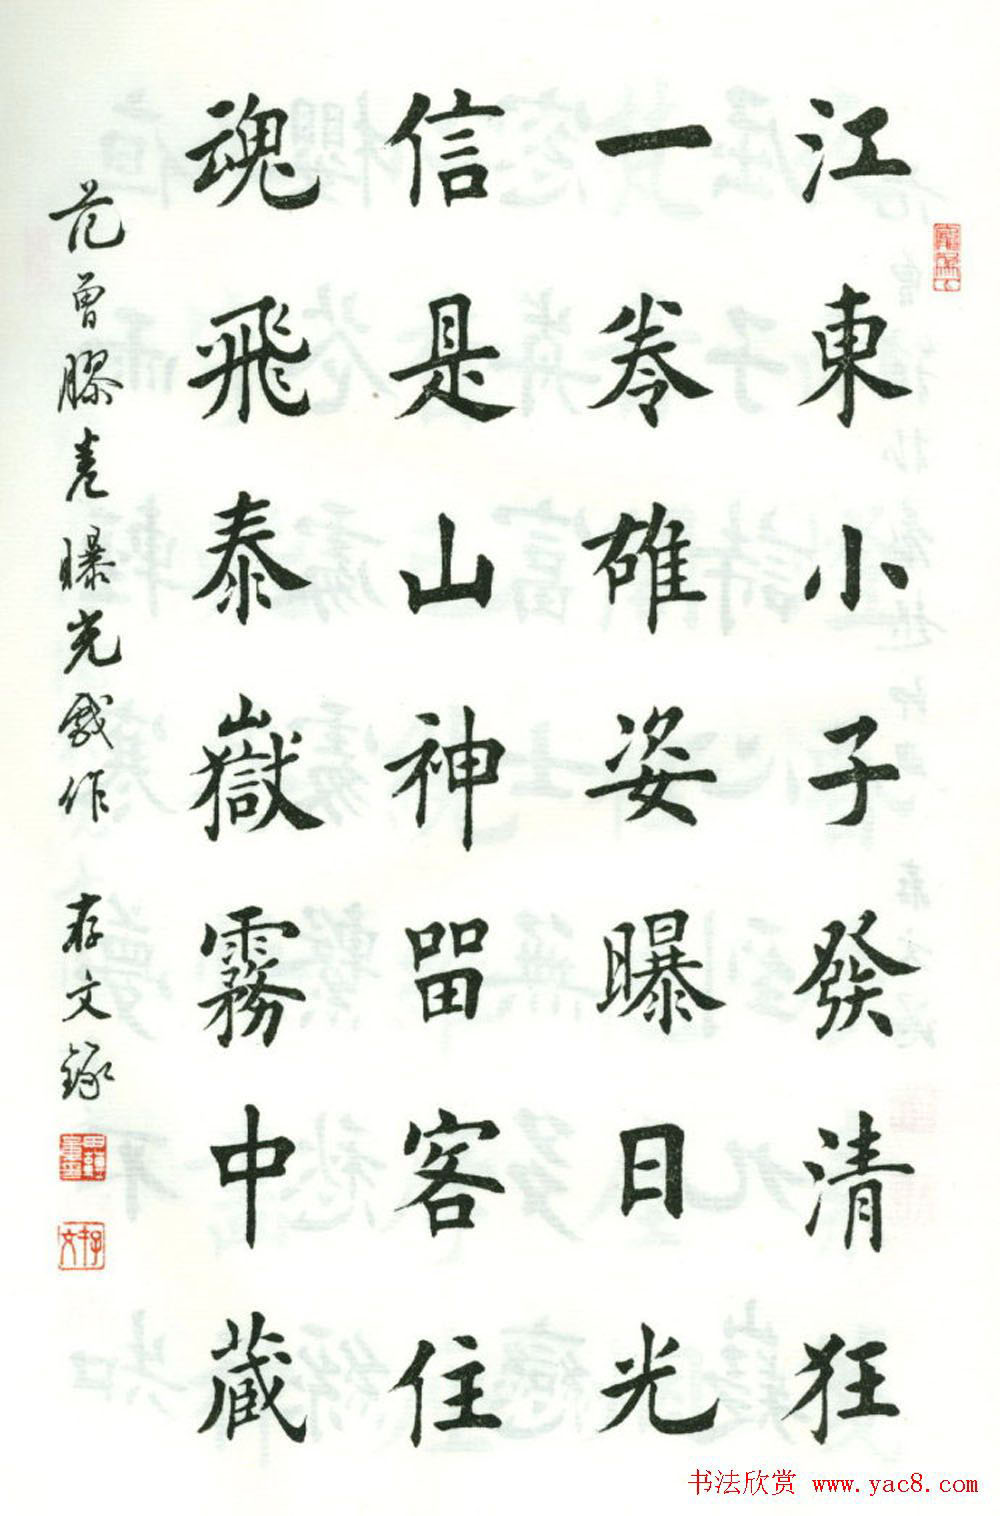 江東小子發清狂
一卷雄姿曝日光
信是山神畱客住
魂飛泰嶽霧中藏
范曾膠卷曝光戲作
存文錄
存文
书法欣赏 www.yac8.com